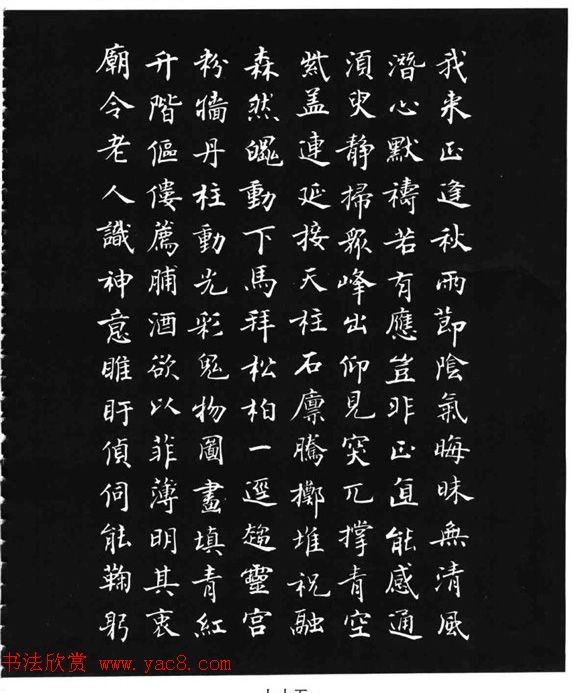 我来正逢秋雨節陰氣晦昧無清風
潛心默禱若有應豈非正直能感通
須臾靜掃眾峰出仰見突兀撐青空
紫盖連延接天柱石廩騰擲堆祝融
森然魄動下馬拜松柏一逕趨靈宮
粉墻丹柱動光彩鬼物圖畫填青紅
升階傴僂薦脯酒欲以菲薄明其衷
廟令老人識神意睢盱偵伺能鞠躬
书法欣赏 www.yac8.com